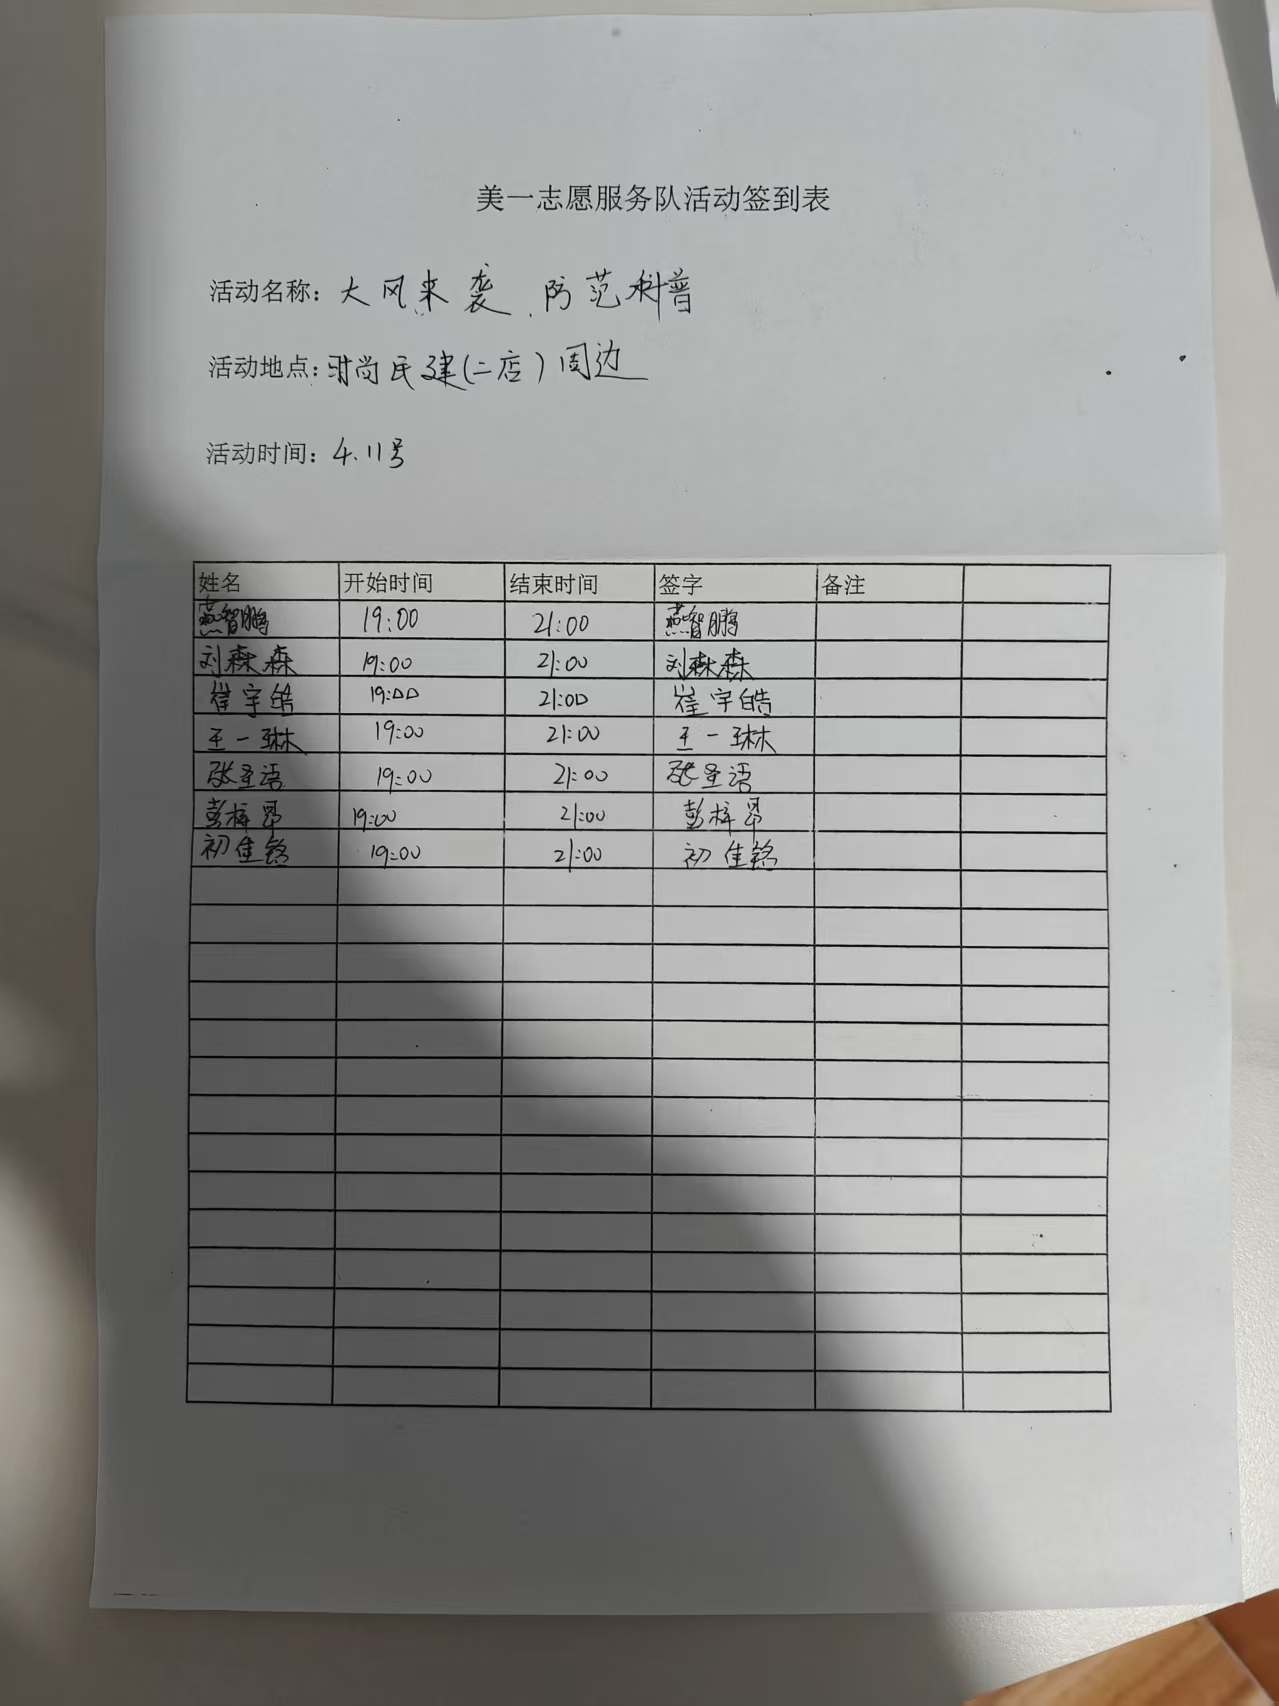 美一志愿服务队活动签到表
活动名称：大风来袭、防范科普
活动地点：时尚民建(二店)周边
活动时间：4.11号
姓名 开始时间 结束时间 签字 备注
燕智鹏 19:00 21:00 燕智鹏
刘森森 19:00 21:00 刘森森
崔宇皓 19:00 21:00 崔宇皓
王一琳 19:00 21:00 王一琳
张圣语 19:00 21:00 张圣语
彭梓昂 19:00 21:00 彭梓昂
初佳铭 19:00 21:00 初佳铭